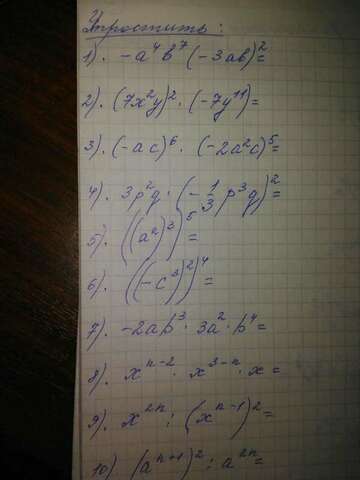 Упростить:
1). -a⁴b⁷(-3ab)²=
2). (7x²y)²·(-7y¹¹)=
3). (-ac)⁶·(-2a²c)⁵=
4). 3p²q·(-1/3 p³q)²=
5). ((a²)³)⁵=
6). ((-c³)²)⁴=
7). -2ab³·3a²·b⁴=
8). xⁿ⁻²·x³⁻ⁿ·x=
9). x²ⁿ:(xⁿ⁻¹)²=
10) (aⁿ⁺¹)²:a²ⁿ=